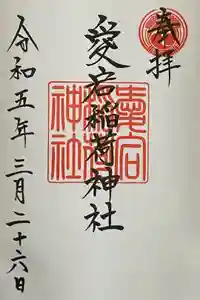 奉拝
愛宕稲荷神社
令和五年三月二十六日